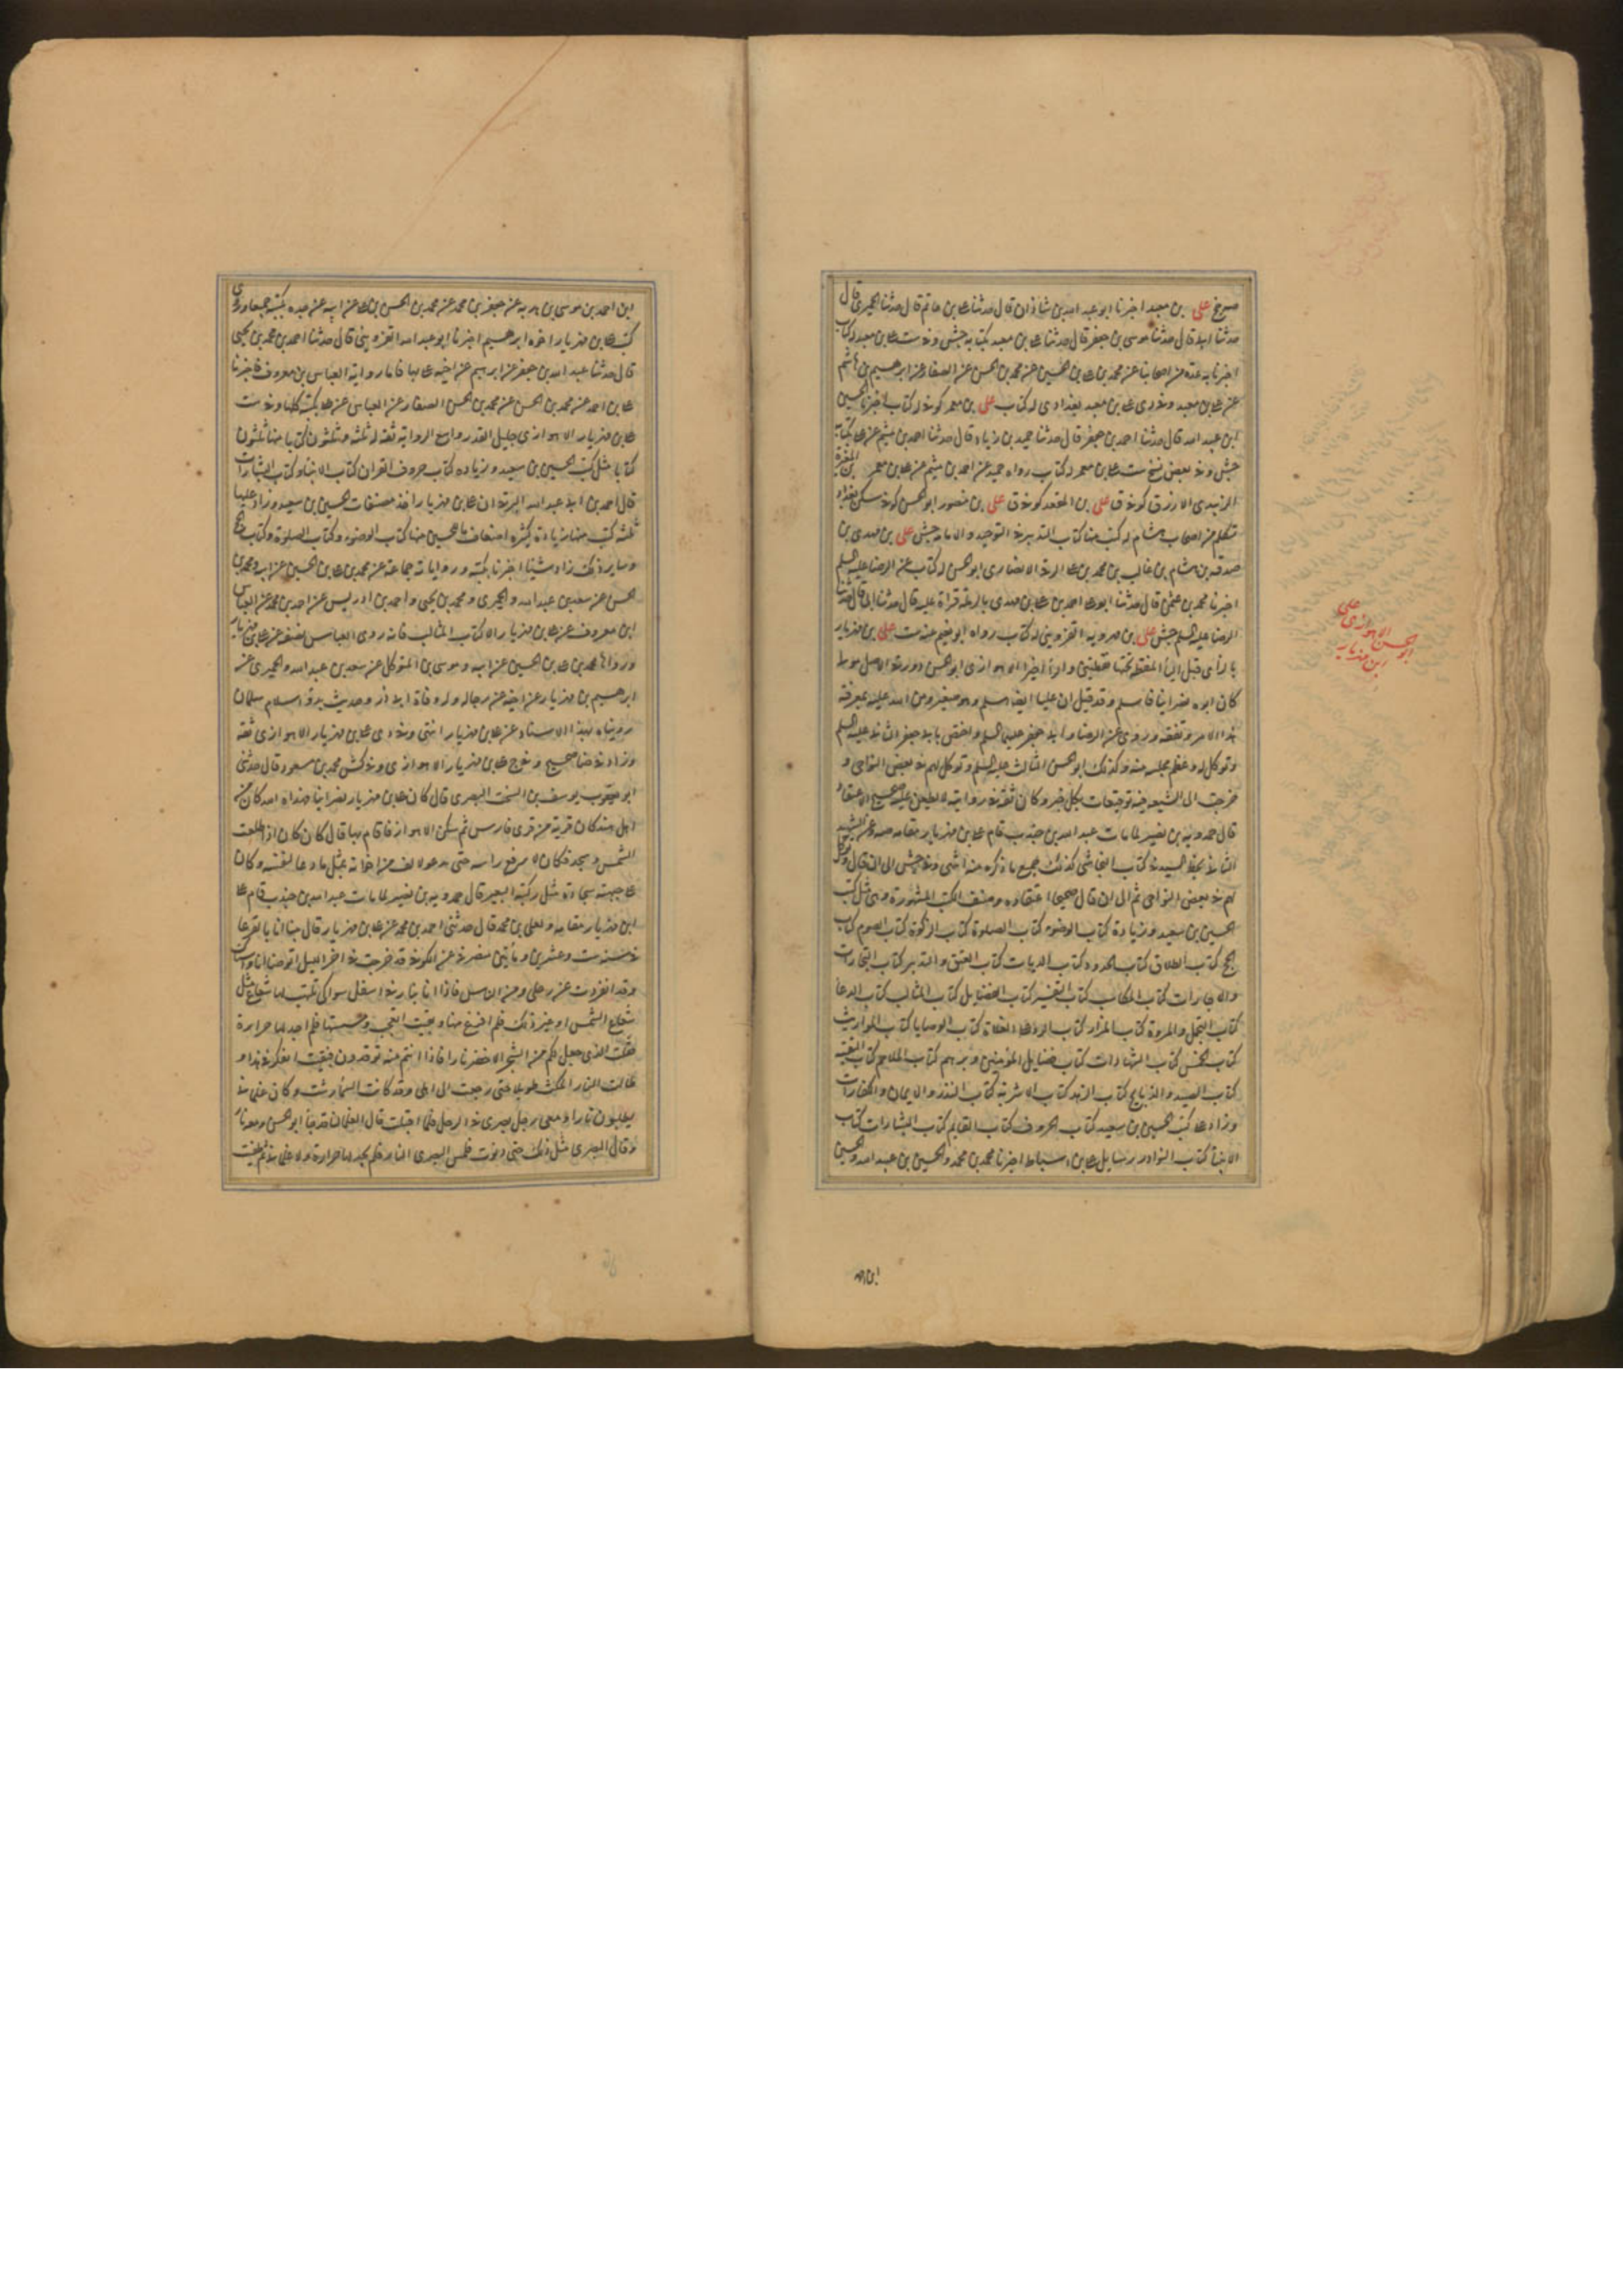 صريح علی بن معبد اخبرنا ابو عبد الله بن شاذان قال حدثنا علی بن حاتم قال حدثنا الحميری قال
حدثنا ابی قال حدثنا موسی بن جعفر قال حدثنا علی بن معبد بكتابه جش و فی ست علی بن معبد له كتاب
اخبرنا به عدة من اصحابنا عن محمد بن علی بن الحسين عن محمد بن الحسن عن الصفار عن ابرهيم بن هاشم
عن علی بن معبد و فی دی علی بن معبد بغدادی له كتاب علی بن معمر كوفی له كتاب اخبرنا الحسين
ابن عبد الله قال حدثنا احمد بن جعفر قال حدثنا حميد بن زياد قال حدثنا احمد بن ميثم عن علی بكتابه
جش و فی بعض نسخ ست علی بن معمر له كتاب رواه حميد عن احمد بن ميثم عن علی بن معمر بن المغيرة
الزبيدی الازرق كوفی ق علی بن المقعد كوفی ق علی بن منصور ابو الحسن كوفی سكن بغداد
متكلم من اصحاب هشام له كتب منها كتاب التدبير فی التوحيد والامامة جش علی بن مهدی بن
صدقة بن هشام بن غالب بن محمد بن علی الرقی الانصاری ابو الحسن له كتاب عن الرضا عليه السلم
اخبرنا محمد بن عثمن قال حدثنا ابو علی احمد بن علی بن مهدی بالرملة قراة عليه قال حدثنا ابی قال حدثنا
الرضا عليه السلم جش علی بن مهرويه القزوينی له كتاب رواه ابو نعيم عنه ست علی بن مهزيار
كان ابوه نصرانيا فاسلم و قد قيل ان عليا ايضا اسلم و هو صغير و من الله عليه بمعرفة
هذا الامر و تفقه و روی عن الرضا و ابی جعفر عليهما السلم و اختص بابی جعفر الثانی عليه السلم
و توكل له و عظم محله منه و كذلك ابو الحسن الثالث عليه السلم و توكل لهم فی بعض النواحی و
خرجت الی الشيعة فيه توقيعات بكل خير و كان ثقة فی روايته لا يطعن عليه صحيح الاعتقاد
قال حمدويه بن نصير لما مات عبد الله بن جندب قام علی بن مهزيار مقامه صه و عن الشهيد
لهم فی بعض النواحی ثم الی ان قال صحيحا اعتقاده و صنف الكتب المشهورة و هی مثل كتب
الحسين بن سعيد و زيادة كتاب الوضوء كتاب الصلوة كتاب الزكوة كتاب الصوم كتاب
الحج كتاب الطلاق كتاب الحدود كتاب الديات كتاب العتق والتدبير كتاب التجارات
والاجارات كتاب المكاسب كتاب التفسير كتاب الفضايل كتاب المثالب كتاب الدعا
كتاب التجمل والمروة كتاب المزار كتاب الرد علی الغلاة كتاب الوصايا كتاب المواريث
كتاب الخمس كتاب الشهادات كتاب فضايل المؤمنين و برهم كتاب الملاحم كتاب التقية
كتاب الصيد والذبايح كتاب الزهد كتاب الاشربة كتاب النذر والايمان والكفارات
و زاد علی كتب الحسين بن سعيد كتاب الحروف كتاب القايم كتاب البشارات كتاب
الانبيا كتاب النوادر رسايل علی بن اسباط اخبرنا محمد بن محمد والحسين بن عبد الله والحسين
علی
ابو الحسن الاهوازی
ابن مهزيار
ابن احمد
ابن احمد بن موسی بن هديه عن جعفر بن محمد عن محمد بن الحسن بن علی عن ابيه عن جده بكتبه جميعا و روی
كتب علی بن مهزيار اخوه ابرهيم اخبرنا ابو عبد الله القزوينی قال حدثنا احمد بن محمد بن يحيی
قال حدثنا عبد الله بن جعفر عن ابرهيم عن اخيه علی بها فاما رواية العباس بن معروف فاخبرنا
علی بن احمد عن محمد بن الحسن عن محمد بن الحسن الصفار عن العباس عن علی بكتبه كلها و فی ست
علی بن مهزيار الاهوازی جليل القدر واسع الرواية ثقة له ثلثة و ثلثون كتابا منها ثلثون
كتابا مثل كتب الحسين بن سعيد و زيادة كتاب حروف القران كتاب الانبياء و كتاب البشارات
قال احمد بن ابی عبد الله البرقی ان علی بن مهزيار اخذ مصنفات الحسين بن سعيد و زاد عليها
ثلثة كتب منها زيادة كثيرة اضعاف ما للحسين منها كتاب الوضوء و كتاب الصلوة و كتاب الحج
و ساير ذلك زاد شيئا اخبرنا بكتبه و رواياته جماعة عن محمد بن علی بن الحسين عن ابيه و محمد بن
الحسن عن سعد بن عبد الله والحميری و محمد بن يحيی و احمد بن ادريس عن احمد بن محمد عن العباس
ابن معروف عن علی بن مهزيار الا كتاب المثالب فانه روی العباس نصفه عن علی بن مهزيار
و رواها محمد بن علی بن الحسين عن ابيه و موسی بن المتوكل عن سعد بن عبد الله والحميری عن
ابرهيم بن مهزيار عن اخيه عن رجاله و له وفاة ابی ذر و حديث بدو اسلام سلمان
رويناه بهذا الاسناد عن علی بن مهزيار انتهی و فی دی علی بن مهزيار الاهوازی ثقة
و زاد فی ضا صحيح و فی ج علی بن مهزيار الاهوازی و فی كش محمد بن مسعود قال حدثنی
ابو يعقوب يوسف بن السخت البصری قال كان علی بن مهزيار نصرانيا فهداه الله كان من
اهل هندكان قرية من قری فارس ثم سكن الاهواز فاقام بها قال كان كان اذا طلعت
الشمس و سجد فكان لا يرفع راسه حتی يدعو لالف من اخوانه بمثل ما دعا لنفسه و كان
علی جبهته سجادة مثل ركبة البعير قال حمدويه بن نصير لما مات عبد الله بن جندب قام علی
ابن مهزيار مقامه و لعلی بن محمد قال حدثنی احمد بن محمد عن علی بن مهزيار قال بينا انا بالقرعا
فی سنة ست و عشرين و مأتين منصرفی عن الكوفة و قد خرجت فی اخر الليل اتوضا انا و استاك
و قد انفردت عن رحلی و من الناس فاذا انا بنار فی اسفل سواكی تلتهب لها شعاع مثل
شعاع الشمس او غير ذلك فلم افزع منها و بقيت اتعجب و مسستها فلم اجد لها حرارة
فقلت الذی جعل لكم من الشجر الاخضر نارا فاذا انتم منه توقدون فبقيت اتفكر فی هذا و
طالت النار المكث طويلا حتی رجعت الی اهلی و قد كانت السماء رشت و كان غلمانی
يطلبون نارا و معی رجل بصری فی الرحل فلما اقبلت قال الغلمان قد جاء ابو الحسن و معه نار
و قال البصری مثل ذلك حتی دنوت فلمس البصری النار فلم يجد لها حرارة و لا غلمانی ثم طفيت